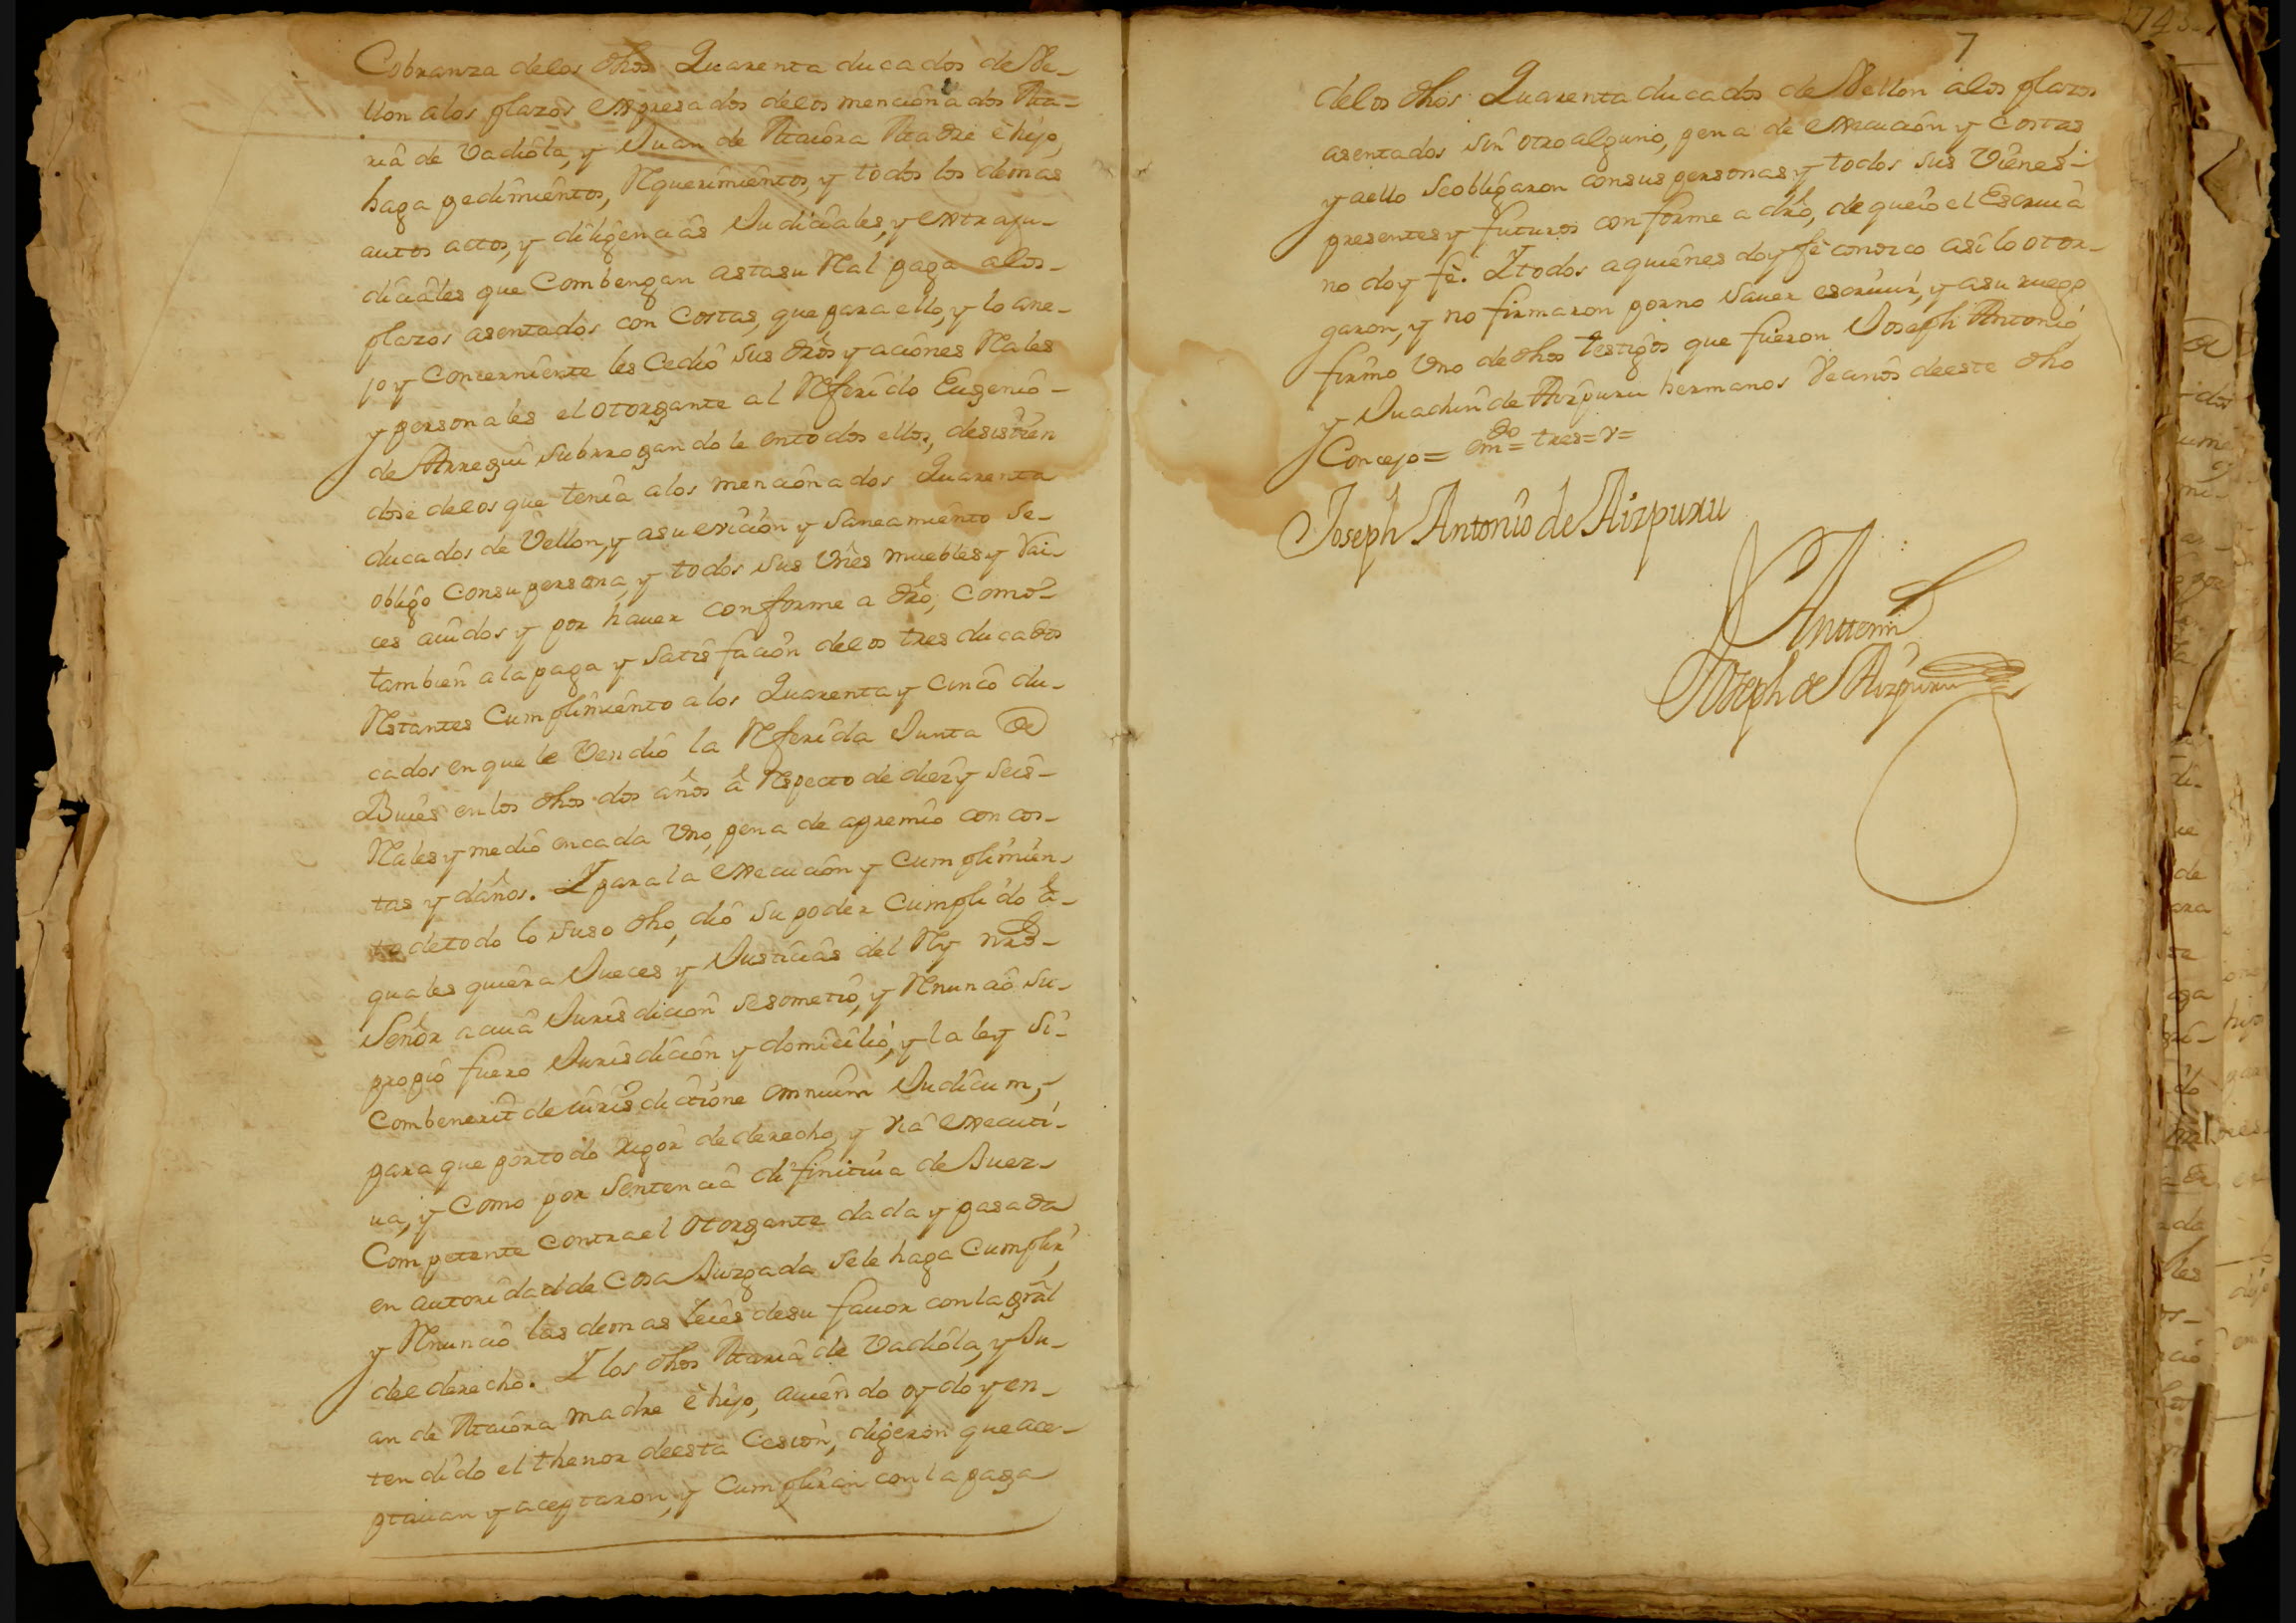 Cobranza delos dhos Quarenta ducados de Ve-
llon alos plazos expresados delos mencionados Ma-
ria de Vadiola, y Juan de Maiora Madre è hijo,
haga pedimientos, Requerimientos, y todos los demas
autos actos, y diligencias Judiciales, y extraju-
diciales que Combengan asta su Real paga alos-
plazos asentados con Costas, que para ello, y lo ane-
jo y Concerniente les Cedio sus dros y aciones Reales
y personales el otorgante al Referido Eugenio-
de Arregui subrrogandole entodos ellos, desistien
dose delos que tenia alos mencionados Quarenta
ducados de Vellon, y asu evicion y Saneamiento se-
obligo Consu persona, y todos sus Vnes muebles y Rai-
ces auidos y por hauer conforme a dro, como-
tambien ala paga y Satisfacion delos tres ducados
Restantes Cumplimiento alos Quarenta y cinco du-
cados en que le Vendio la Referida Junta de
Bueies en los dhos dos años â Respecto de diez y seis-
Reales y medio encada Vno, pena de apremio con cos-
tas y daños. Y para la execucion y cumplimien-
to detodo lo suso dho, dio su poder Cumplido â-
quales quiera Jueces y Justicias del Rey nro-
Señor acuia Jurisdicion sesometio, y Renuncio su-
propio fuero Jurisdicion y domicilio, y la ley Si-
Combenerit de iurisdictione omnium Judicum,-
para que portodo rigor de derecho, y via executi-
ua, y Como por Sentencia difinitiua de Juez-
Competente contrael otorgante dada y pasada
en autoridad de Cosa Juzgada sele haga Cumplir,
y Renuncio las demas leies desu fauor con la gral
del derecho. Y los dhos Maria de Vadiola, y Ju-
an de Maiora madre è hijo, auiendo oydo y en-
tendido el thenor deesta Cesion, digeron que ace-
ptauan y aceptaron, y Cumpliran con la paga
7
delos dhos Quarenta ducados de Vellon alos plazos
asentados sin otro alguno, pena de execucion y costas
y aello seobligaron consus personas y todos sus Vienes-
presentes y futuros conforme a dro, de queio el Escriua
no doy fè. Y todos aquienes doy fè conozco asilo otor-
garon, y no firmaron porno Sauer escriuir, y asu ruego
firmo Vno de dhos testigos que fueron Joseph Antonio
y Juachin de Aizpuru hermanos Vecinos deeste dho
Concejo= emdo= tres=v=
Joseph Antonio de Aizpuru
Antemi
Joseph de Aizpuru